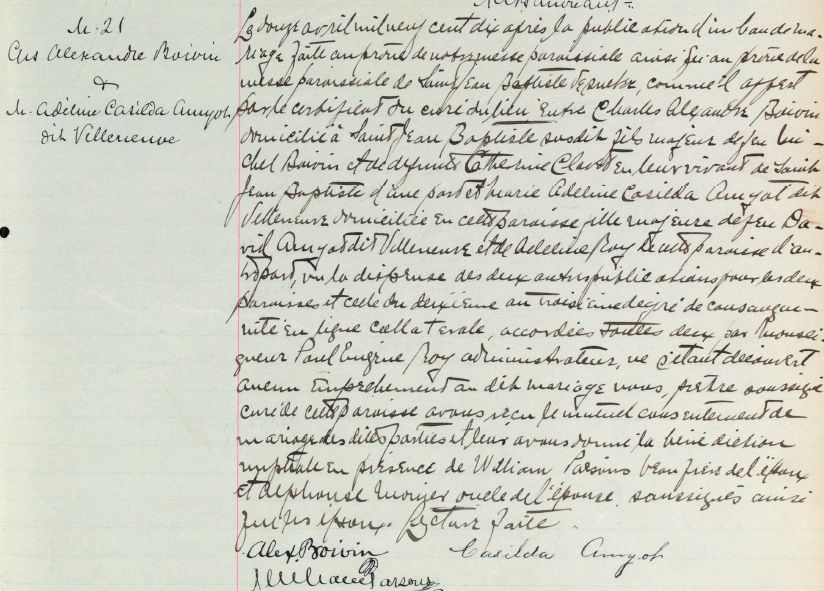 M. 21
Chs Alexandre Boivin
&
M. Adéline Casilda Amyot
dit Villeneuve
Le douze avril mil neuf cent dix après la publication d'un ban de ma-
riage faite au prône de notre messe paroissiale ainsi qu'au prône de la
messe paroissiale de Saint Jean Baptiste de Québec, comme il appert
par le certificat du curé du lieu Entre Charles Alexandre Boivin
domicilié à Saint Jean Baptiste susdit fils majeur de feu Mi-
chel Boivin et de défunte Catherine Clavet en leur vivant de Saint
Jean Baptiste d'une part et Marie Adéline Casilda Amyot dit
Villeneuve domiciliée en cette paroisse fille majeure de feu Da-
vid Amyot dit Villeneuve et de Adeline Roy de cette paroisse d'au-
tre part, vu la dispense des deux autres publications pour les deux
paroisses et celle du deuxième au troisième dégré de consangui-
nité en ligne collaterale, accordées toutes deux par Monsei-
gneur Paul Eugène Roy administrateur, ne s'étant découvert
aucun empêchement au dit mariage nous, prêtre soussigné
curé de cette paroisse avons reçu le mutuel consentement de
mariage des dites parties et leur avons donné la bénédiction
nuptiale en présence de William Parsons beau frère de l'époux
et Alphonse oncle de l'épouse, soussignés ainsi
que les époux. Lecture faite.
Alex Boivin Casilda Amyot
William Parsons